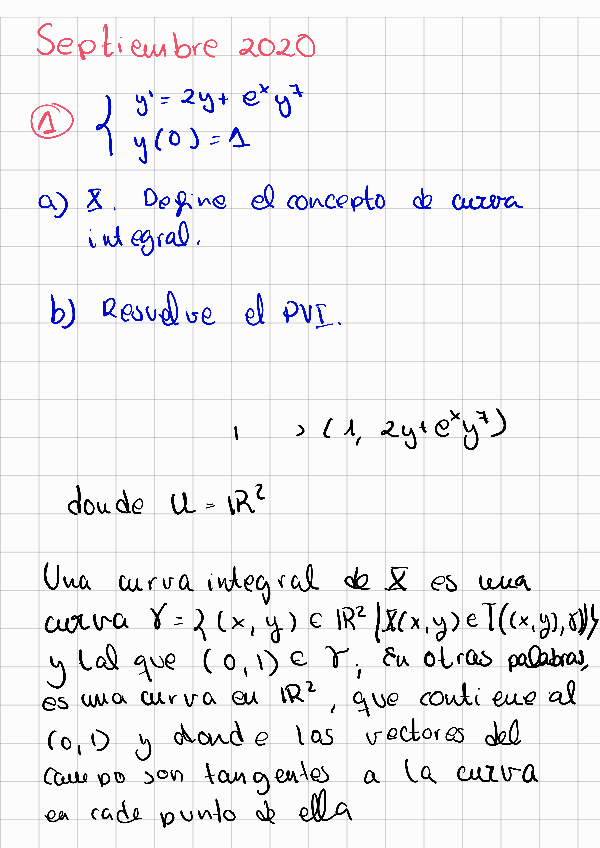 Septiembre 2020
① { y' = 2y + eˣ y⁷
y(0) = 1
a) X. Define el concepto de curva
integral.
b) Resuelve el PVI.
(1, 2y + eˣ y⁷)
donde U = ℝ²
Una curva integral de X es una
curva γ = {(x, y) ∈ ℝ² | X(x, y) ∈ T((x, y), γ)}
y tal que (0, 1) ∈ γ; En otras palabras,
es una curva en ℝ², que contiene al
(0, 1) y donde los vectores del
campo son tangentes a la curva
en cada punto de ella